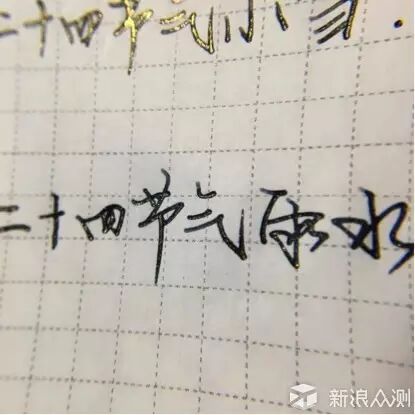 二十四节气小雪.
二十四节气雨水
新浪众测